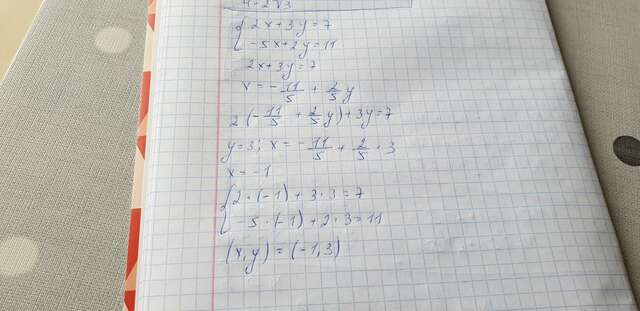 4-2√3
{ 2x+3y=7
-5x+2y=11
2x+3y=7
x=-11/5+2/5y
2(-11/5+2/5y)+3y=7
y=3; x=-11/5+2/5·3
x=-1
{ 2·(-1)+3·3=7
-5·(-1)+2·3=11
(x,y)=(-1,3)